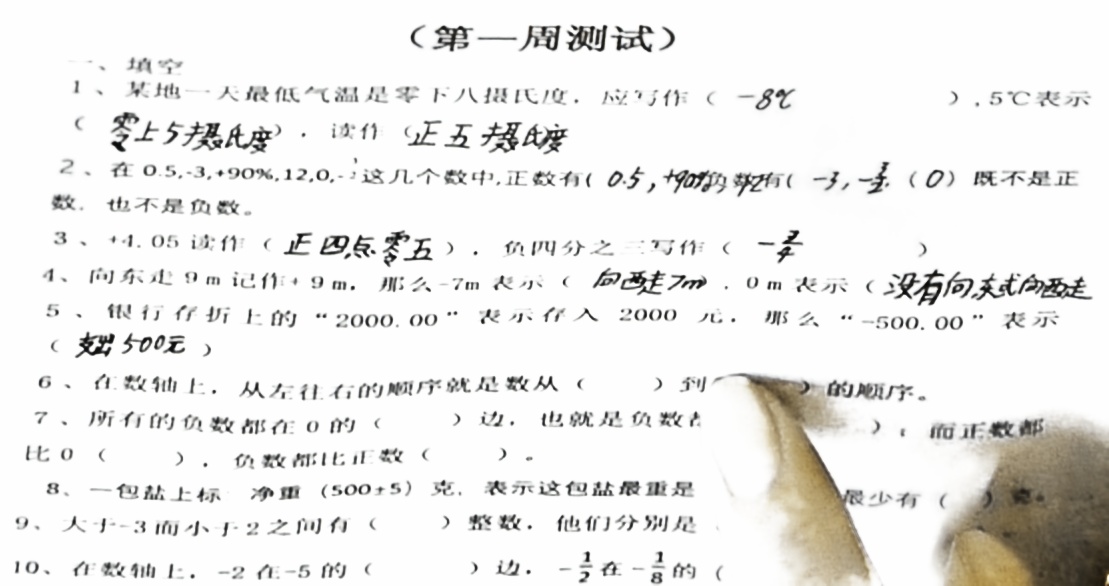 （第一周测试）
一、填空
1、某地一天最低气温是零下八摄氏度，应写作（ -8℃ ）,5℃表示
（ 零上5摄氏度 ），读作（正五摄氏度
2、在 0.5,-3,+90%,12,0,- 这几个数中,正数有( 0.5,+90% 负数有( -3,- （0）既不是正
数，也不是负数。
3、+4.05读作（正四点零五），负四分之三写作（ -3/4 ）
4、向东走9m记作+9m，那么-7m表示（ 向西走7m），0m表示（没有向东或向西走
5、银行存折上的“2000.00”表示存入2000元，那么“-500.00”表示
（ 支出500元 ）
6、在数轴上，从左往右的顺序就是数从（ ）到 ）的顺序。
7、所有的负数都在0的（ ）边，也就是负数 ）；而正数都
比0（ ），负数都比正数（ ）。
8、一包盐上标 净重（500±5）克，表示这包盐最重是 最少有（ ）克。
9、大于-3而小于2之间有（ ）整数，他们分别是
10、在数轴上，-2在-5的（ ）边，-1/2在-1/8的（